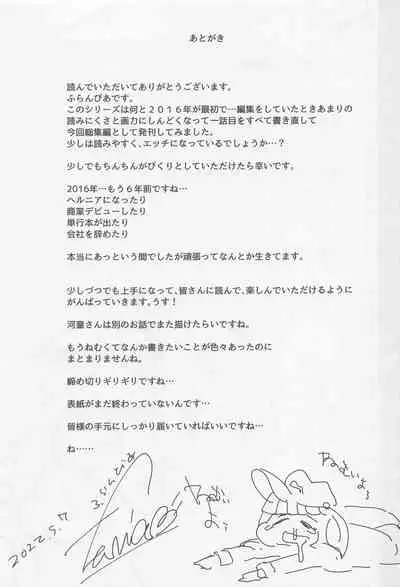 あとがき
読んでいただいてありがとうございます。
ふらんぴあです。
このシリーズは何と2016年が最初で…編集をしていたときあまりの
読みにくさと画力にしんどくなって一話目をすべて書き直して
今回総集編として発刊してみました。
少しは読みやすく、エッチになっているでしょうか…？
少しでもちんちんがぴくりとしていただけたら幸いです。
2016年…もう6年前ですね…
ヘルニアになったり
商業デビューしたり
単行本が出たり
会社を辞めたり
本当にあっという間でしたが頑張ってなんとか生きてます。
少しづつでも上手になって、皆さんに読んで、楽しんでいただけるように
がんばっていきます。うす！
河童さんは別のお話でまた描けたらいいですね。
もうねむくてなんか書きたいことが色々あったのに
まとまりませんね。
締め切りギリギリですね…
表紙がまだ終わっていないんです…
皆様の手元にしっかり届いていればいいですね…
ね……
ふらんぴあ
2022.5.7
ねむいよぅ